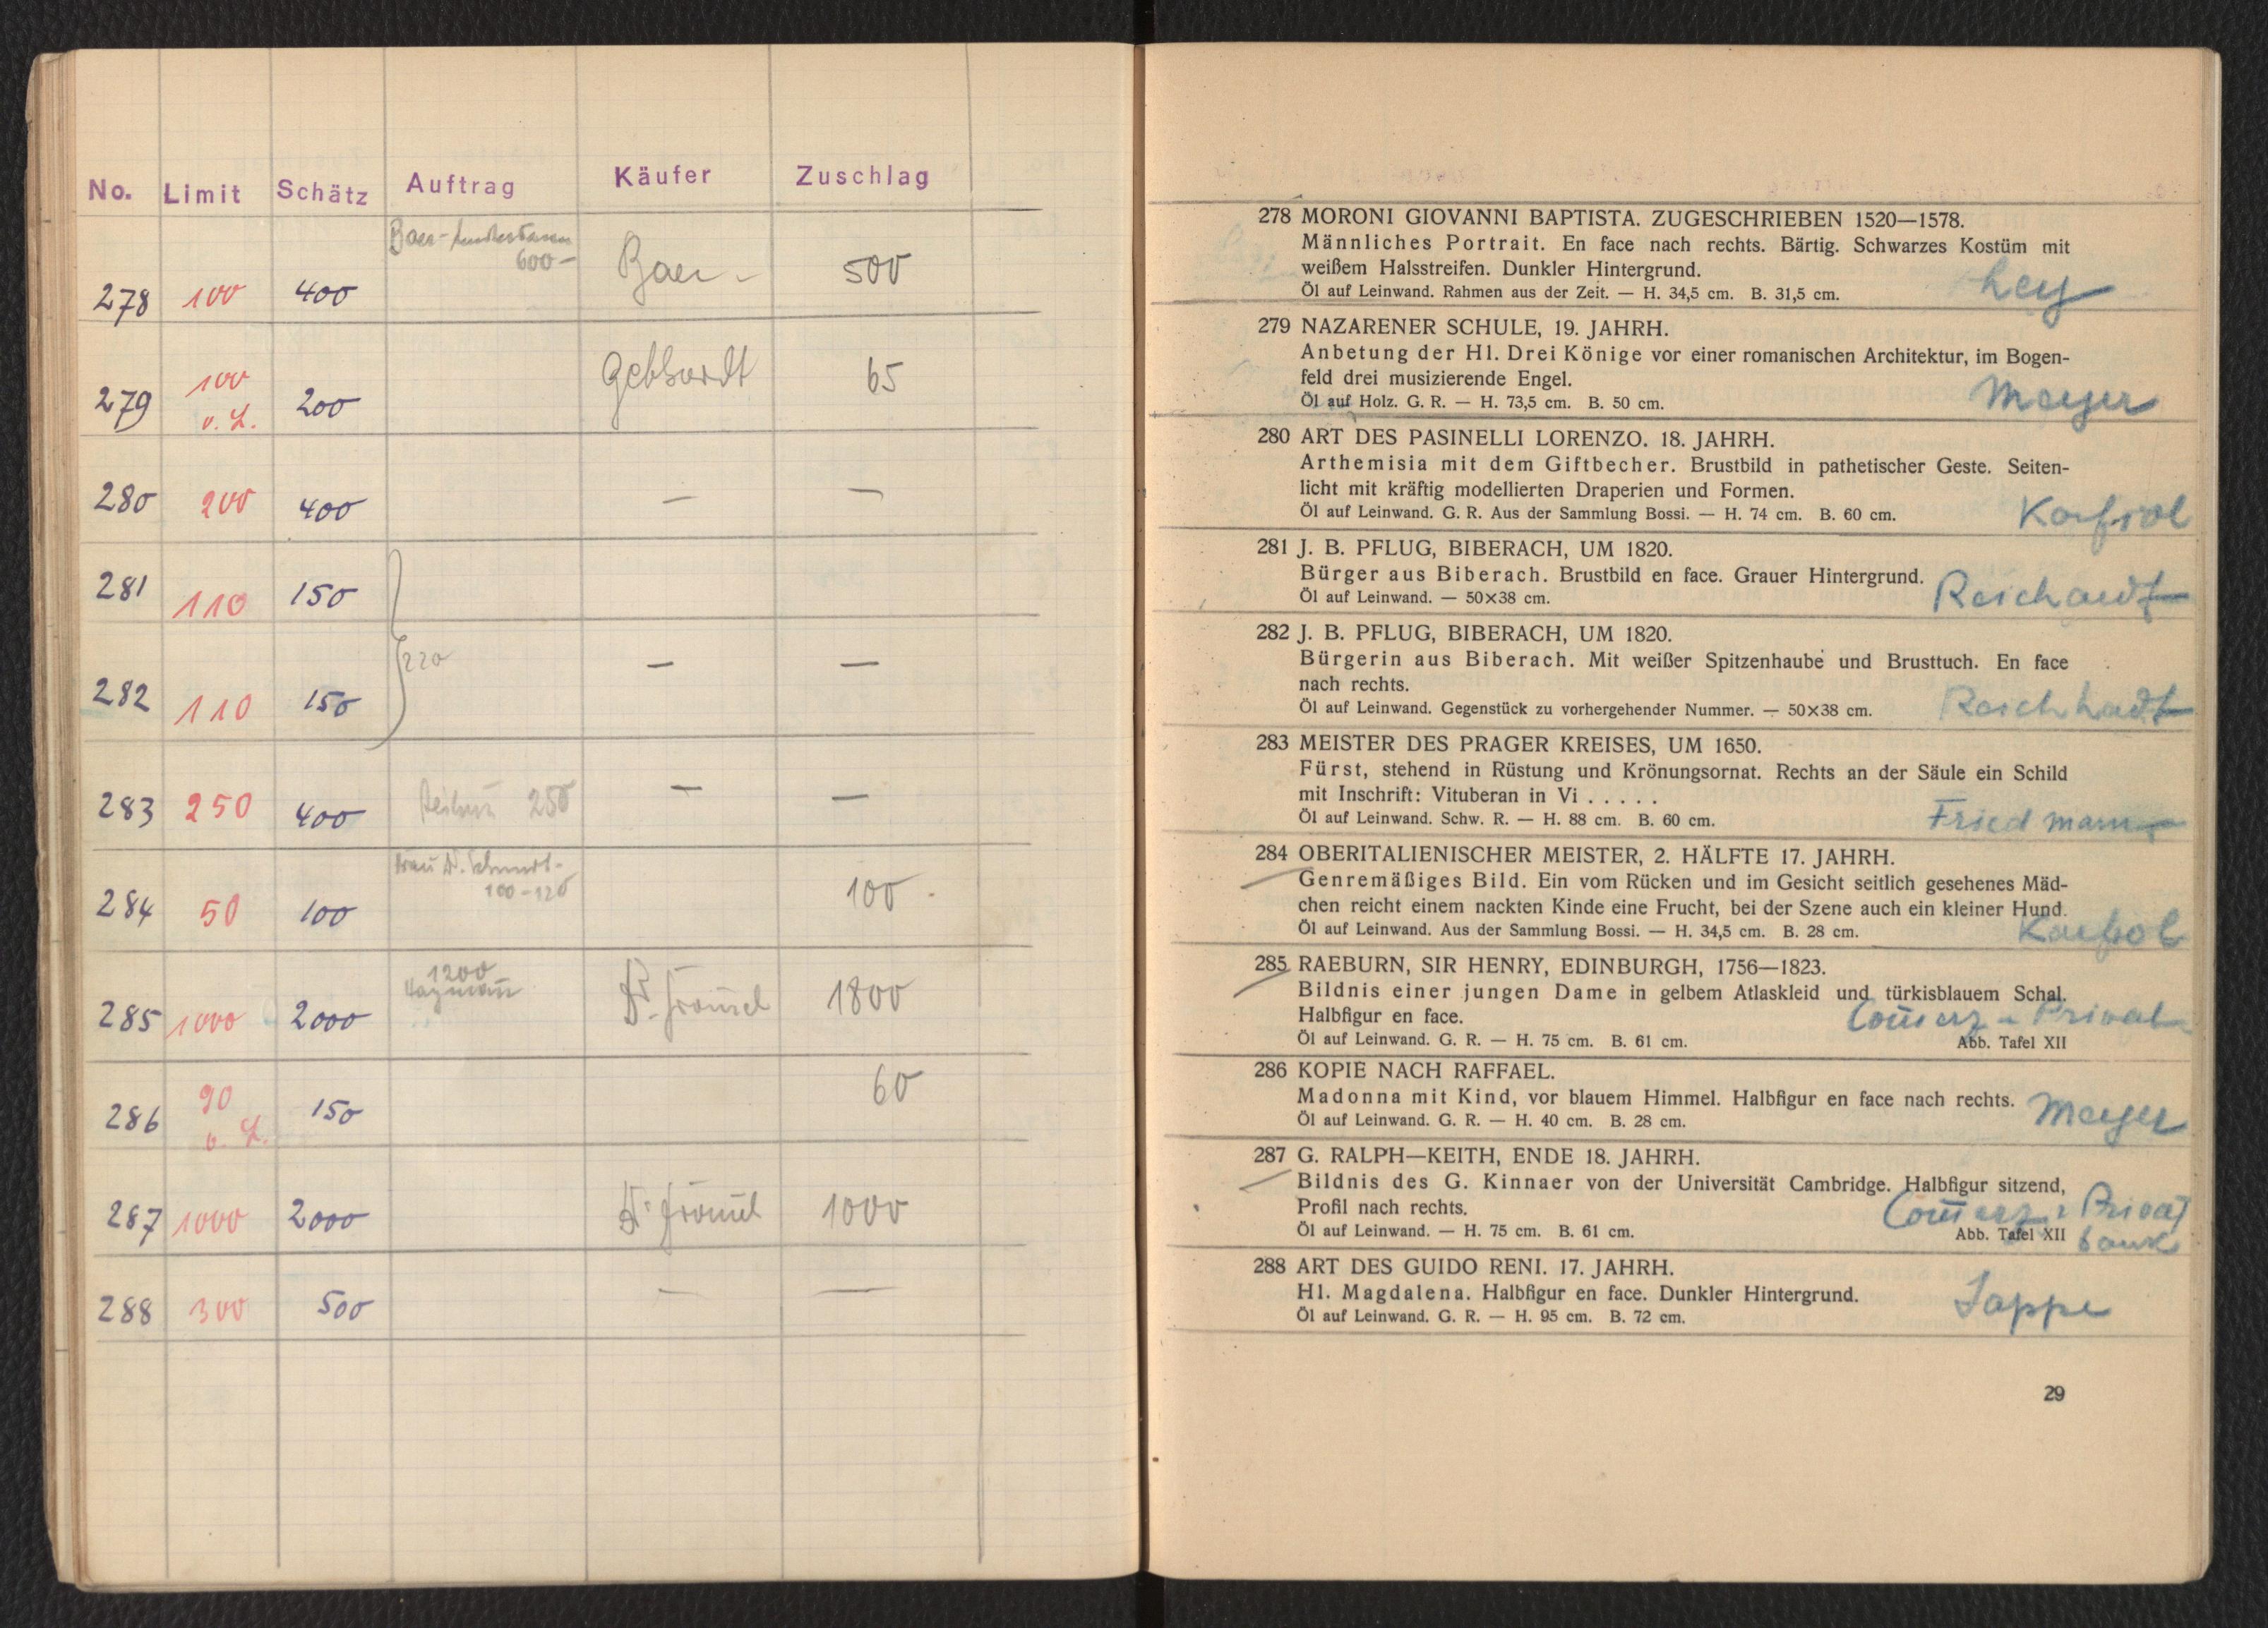 No. Limit Schätz Auftrag Käufer Zuschlag
278 100 400 Baer- 600- Baer - 500
279 100 o. L. 200 Gebhardt 65
280 200 400 — —
281 110 150
282 110 150 220 — —
283 250 400 250 — —
284 50 100 Frau Dr. 100-120 100 -
285 1000 2000 1200 Dr. 1800
286 90 o. L. 150 60
287 1000 2000 Dr. 1000
288 300 500 — —
278 MORONI GIOVANNI BAPTISTA. ZUGESCHRIEBEN 1520—1578.
Männliches Portrait. En face nach rechts. Bärtig. Schwarzes Kostüm mit
weißem Halsstreifen. Dunkler Hintergrund.
Öl auf Leinwand. Rahmen aus der Zeit. — H. 34,5 cm. B. 31,5 cm.
Ley
279 NAZARENER SCHULE, 19. JAHRH.
Anbetung der Hl. Drei Könige vor einer romanischen Architektur, im Bogen-
feld drei musizierende Engel.
Öl auf Holz. G. R. — H. 73,5 cm. B. 50 cm.
Meyer
280 ART DES PASINELLI LORENZO. 18. JAHRH.
Arthemisia mit dem Giftbecher. Brustbild in pathetischer Geste. Seiten-
licht mit kräftig modellierten Draperien und Formen.
Öl auf Leinwand. G. R. Aus der Sammlung Bossi. — H. 74 cm. B. 60 cm.
281 J. B. PFLUG, BIBERACH, UM 1820.
Bürger aus Biberach. Brustbild en face. Grauer Hintergrund.
Öl auf Leinwand. — 50×38 cm.
Reichardt
282 J. B. PFLUG, BIBERACH, UM 1820.
Bürgerin aus Biberach. Mit weißer Spitzenhaube und Brusttuch. En face
nach rechts.
Öl auf Leinwand. Gegenstück zu vorhergehender Nummer. — 50×38 cm.
Reichhadt
283 MEISTER DES PRAGER KREISES, UM 1650.
Fürst, stehend in Rüstung und Krönungsornat. Rechts an der Säule ein Schild
mit Inschrift: Vituberan in Vi . . . . .
Öl auf Leinwand. Schw. R. — H. 88 cm. B. 60 cm.
Friedmann
284 OBERITALIENISCHER MEISTER, 2. HÄLFTE 17. JAHRH.
Genremäßiges Bild. Ein vom Rücken und im Gesicht seitlich gesehenes Mäd-
chen reicht einem nackten Kinde eine Frucht, bei der Szene auch ein kleiner Hund.
Öl auf Leinwand. Aus der Sammlung Bossi. — H. 34,5 cm. B. 28 cm.
285 RAEBURN, SIR HENRY, EDINBURGH, 1756—1823.
Bildnis einer jungen Dame in gelbem Atlaskleid und türkisblauem Schal.
Halbfigur en face.
Com̅erz - Privat
Öl auf Leinwand. G. R. — H. 75 cm. B. 61 cm. Abb. Tafel XII
286 KOPIE NACH RAFFAEL.
Madonna mit Kind, vor blauem Himmel. Halbfigur en face nach rechts.
Öl auf Leinwand. G. R. — H. 40 cm. B. 28 cm.
Meyer
287 G. RALPH—KEITH, ENDE 18. JAHRH.
Bildnis des G. Kinnaer von der Universität Cambridge. Halbfigur sitzend,
Profil nach rechts.
Com̅erz - Privat
bank
Öl auf Leinwand. — H. 75 cm. B. 61 cm. Abb. Tafel XII
288 ART DES GUIDO RENI. 17. JAHRH.
Hl. Magdalena. Halbfigur en face. Dunkler Hintergrund.
Öl auf Leinwand. G. R. — H. 95 cm. B. 72 cm.
29